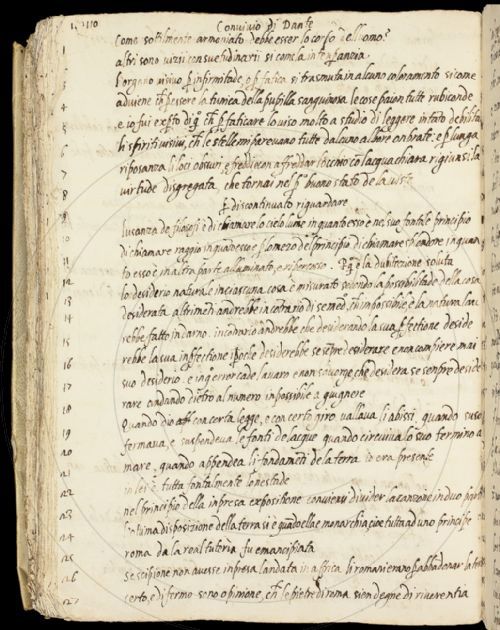 Convivio di Dante
Come sottilmente armoniato debbe esser lo corso dell'uomo?
altri sono vizii consuetudinarii si come la intemperanzia.
l'organo visivo per infirmitade, o per fatica si trasmuta in alcuno coloramento si come
adviene che per essere la tunica della pupilla sanguinosa le cose paion tutte rubiconde
e io fui experto di che per faticare lo viso molto a studio di leggere in tato debilitai
li spiriti visivi, che le stelle mi parevano tutte d'alcuno albore ombrate: e per lunga
riposanza li loci obscuri, e freddi con affreddar l'occhio con l'acqua chiara rigiunsi la
virtude disgregata che tornai nel buono stato de la viste
per discontinuato riguardare
l'usanza de filosofi è di chiamare lo cielo lume in quanto esso è nel suo fontale principio
di chiamare raggio in quanto esso è per lo mezo del principio di chiamare splendore in quan
to esso è in altra parte alluminato, e riperosso. la dubitazione soluta
lo desiderio naturale in ciascuna cosa è misurato secondo la possibilitade della cosa
desiderata altrimenti andrebbe in contrario di se med. ch'impossibile è la natura l'au
rebbe fatto indarno. in contrario andrebbe che desiderando la sua perfectione deside
rebbe la sua imperfectione desiderebbe se sempre desiderare e non compiere mai
suo desiderio. e in error cade l'avaro e non s'accorge, che desidera se sempre deside
rare andando dietro al numero impossibile a giugnere
Quando dio con certa legge, e con certo giro vallava li abissi, quando suso
fermava, e suspendeva le fonti de l'acque quando circuiva lo suo termino a
mare, quando appendea li fondamenti de la terra io era presente
in lei è tutta fontalmente l'onestade
nel principio della impresa expositione conviensi divider la canzone in due parti
l'ottima disposizione della terra si è quando ella è monarchia cioè tutta ad uno principe
roma da la real tutoria fu emancipata
Se scipione non avesse impresa l'andata in affrica li romani erano per abbandonar la terra
certo, e di fermo sono opinione, che le pietre di roma sien degne di riverentia